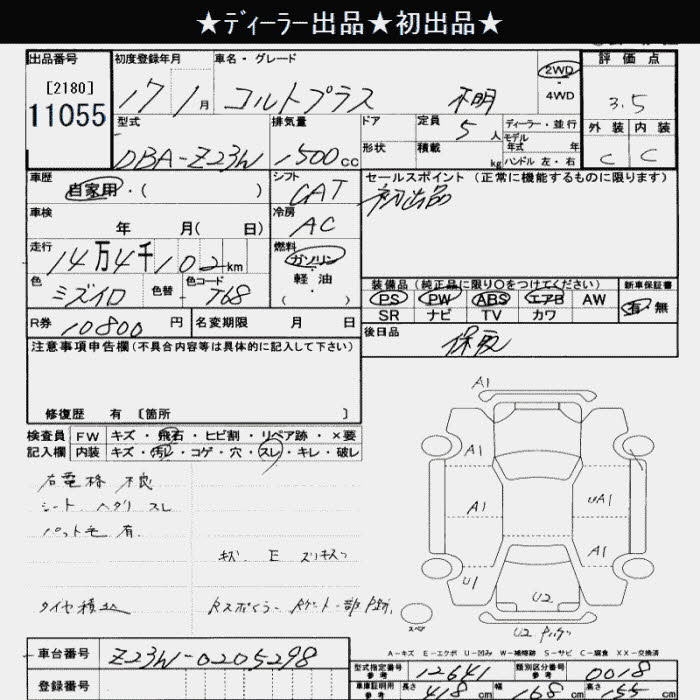 ★ディーラー出品★初出品★
出品番号 初度登録年月 車名・グレード 2WD 評価点
[2180]
11055 17 1月 コルトプラス 不明 4WD 3.5
型式 排気量 ドア 定員 5人 ディーラー・並行 外装 内装
モデル年式 年
DBA-Z23W 1500cc 形状 積載 kg ハンドル 左・右 C C
車歴 自家用・( ) シフト CAT セールスポイント (正常に機能するものに限ります)
初出品
車検 年 月( 日) 冷房 AC
走行 14万4千102km 燃料 ガソリン・軽油( )
色 ミズイロ 色替 色コード T68
装備品 (純正品に限り○をつけてください) 新車保証書
PS PW ABS エアB AW 有・無
SR ナビ TV カワ
R券 10800円 名変期限 月 日
後日品 保取
注意事項申告欄 (不具合内容等は具体的に記入して下さい)
修復歴 有 〔箇所 〕
検査員 FW キズ・飛石・ヒビ割・リペア跡・×要
記入欄 内装 キズ・汚レ・コゲ・穴・スレ・キレ・破レ
右電格 不良
シート ヘタリ スレ
ペット毛 有
キズ E
タイヤ積込
A1
A1
A1 UA1
A1
U1 U2
スペア
U2
A-キズ E-エクボ U-凹み W-補修跡 S-サビ C-腐食 XX-交換済
車台番号 Z23W-0205298
型式指定番号 12641 類別区分番号 0018
登録番号
車庫証明用参考 長さ 418cm 幅 168cm 高さ 155cm